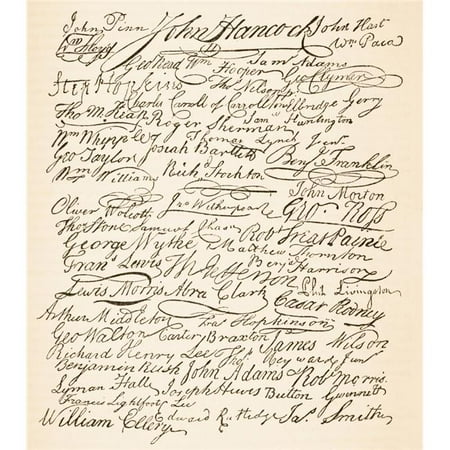 John Penn John Hancock John Hart
Wm Floyd Wm Paca
Geo Read Wm Hooper Sam Adams
Step Hopkins Tho Nelson jr Geo Clymer
Charles Carroll of Carrollton Elbridge Gerry
Tho M. Kean Roger Sherman Sam Huntington
Wm Whipple Thomas Lynch Junr
Geo Taylor Josiah Bartlett Benj Franklin
Wm Williams Rich Stockton
John Morton
Oliver Wolcott Jno Witherspoon Geo. Ross
Thos Stone Samuel Chase Robt Treat Paine
George Wythe Matthew Thornton
Frans Lewis Th Jefferson Benj Harrison
Lewis Morris Abra Clark Phil Livingston
Cæsar Rodney
Arthur Middleton Fras Hopkinson
Geo Walton Carter Braxton James Wilson
Richard Henry Lee Thos Heyward Junr
Benjamin Rush John Adams Robt Morris
Lyman Hall Joseph Hewes Button Gwinnett
Francis Lightfoot Lee
William Ellery Edward Rutledge Jas Smith